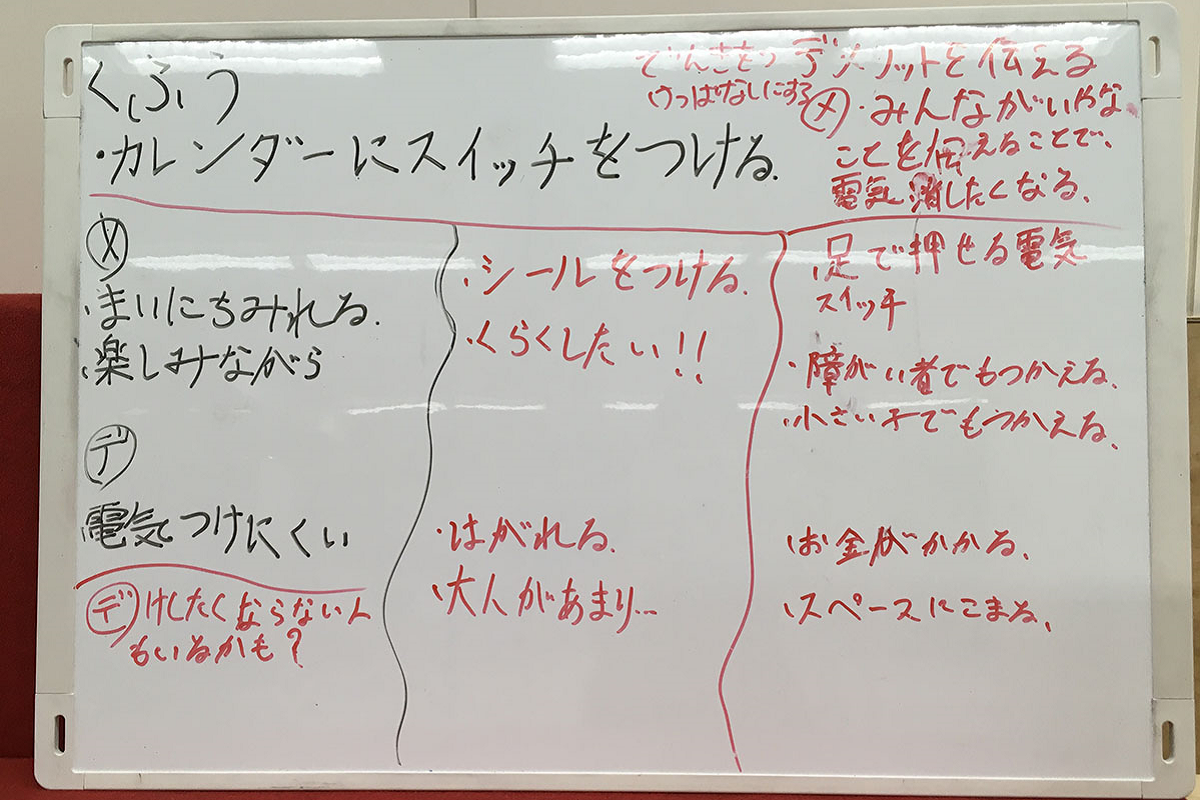 くふう
・カレンダーにスイッチをつける.
でんきをつ
けっぱなしにする
デメリットを伝える
㋱・みんながいやな
ことを伝えることで、
電気消したくなる、
㋱
・まいにちみれる.
・楽しみながら
㋢
電気つけにくい
㋢けしたくならない人
もいるかも?
・シールをつける.
・くらくしたい!!
・はがれる.
・大人があまり…
・足で押せる電気
スイッチ
・障がい者でもつかえる.
・小さい子でもつかえる、
・お金がかかる、
・スペースにこまる、